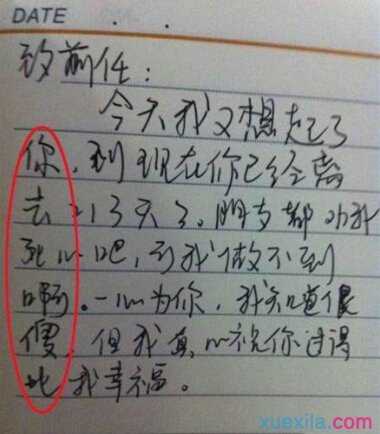 DATE . .
致前任：
今天我又想起了
你，到现在你已经离
去213天了。朋友都劝我
死心吧，到我做不到
啊。一心为你，我知道很
傻，但我真心祝你过得
比我幸福。
xuexila.com